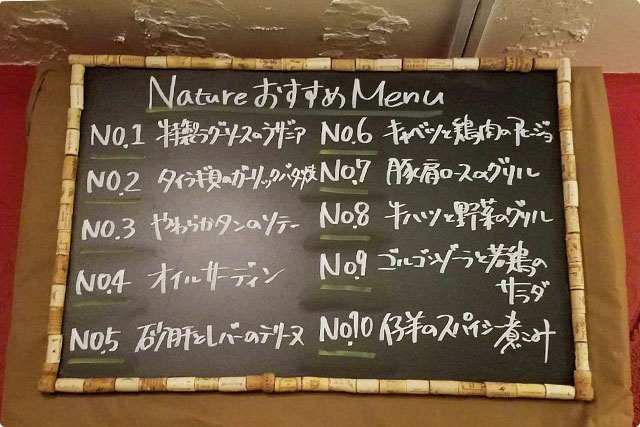 Nature おすすめ Menu
NO.1 特製ラグーソースのラザニア
NO.2 タイラギ貝のガーリックバター焼
NO.3 やわらかタンのソテー
NO.4 オイルサーディン
NO.5 砂肝とレバーのテリーヌ
NO.6 キャベツと鶏肉のアヒージョ
NO.7 豚肩ロースのグリル
NO.8 牛ハツと野菜のグリル
NO.9 ゴルゴンゾーラと若鶏の
サラダ
NO.10 仔羊のスパイシー煮こみ